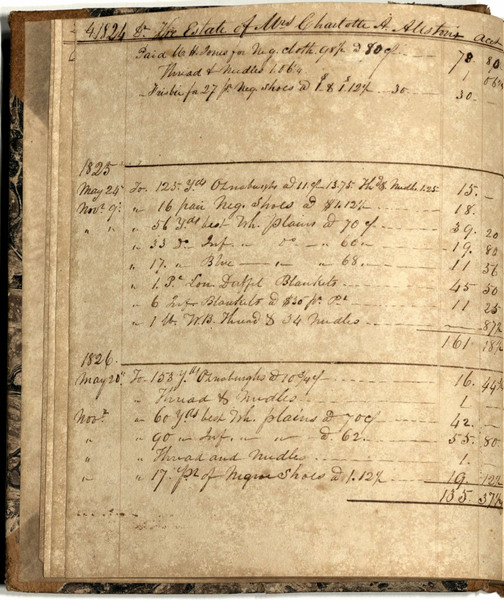 1824 Dr The Estate of Mrs Charlotte A. Allston's Acct
Paid W. H. Jones for Neg. cloth 98 ps @ 80 cts 78 80
Thread & Needles 1.06¼ 1 06¼
Frisbie for 27 pr Neg. Shoes @ 1. & 1.12½ 30 30
1825
May 24 To 125 Yds Oznaburghs @ 11 cts 13.75 Thd & Needle 1.25 15
Novr 9 " 16 pair Neg. Shoes @ $1.12½ 18
" " " 56 Yds best Wh. plains @ 70 cts 39 20
" 33 Do Inf. " Do " 60 " 19 80
" 17 " Blue " " 68 11 56
" 1 Ps Lon Duffil Blankets 45 50
" 6 Inf. Blankets @ $30 pr Ps 11 25
" 1 lb. W.B. Thread & 34 Needles 87½
161 18½
1826
May 20 To 153 Yds Oznaburghs @ 10¾ cts 16 44¾
" Thread & Needles 1
Novr " 60 Yds best Wh. plains @ 70 cts 42
" " 90 " Inf. " " @ 62 55 80
" " Thread and Needles 1
" " 17 Pr of Negro Shoes @ 1.12½ 19 12½
135 37½